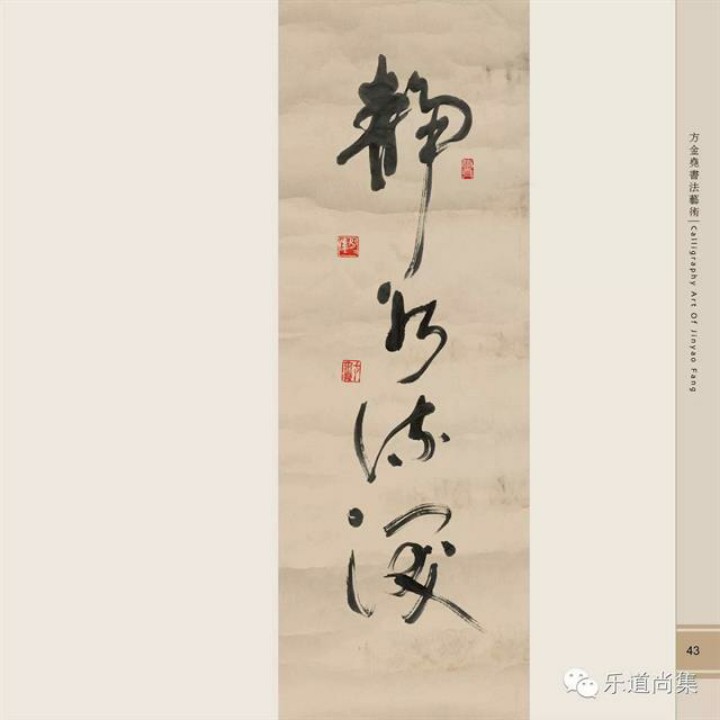 静水流深
方金尭書法藝術 | Calligraphy Art Of Jinyao Fang
43
乐道尚集